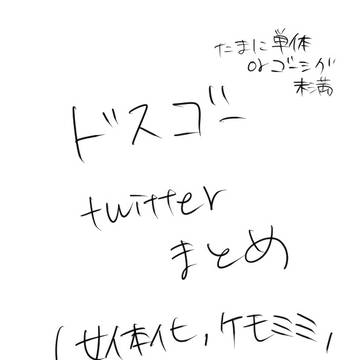 たまに単体
orゴーシグ
未満
ドスゴー
twitter
まとめ
(女体化,ケモミミ,